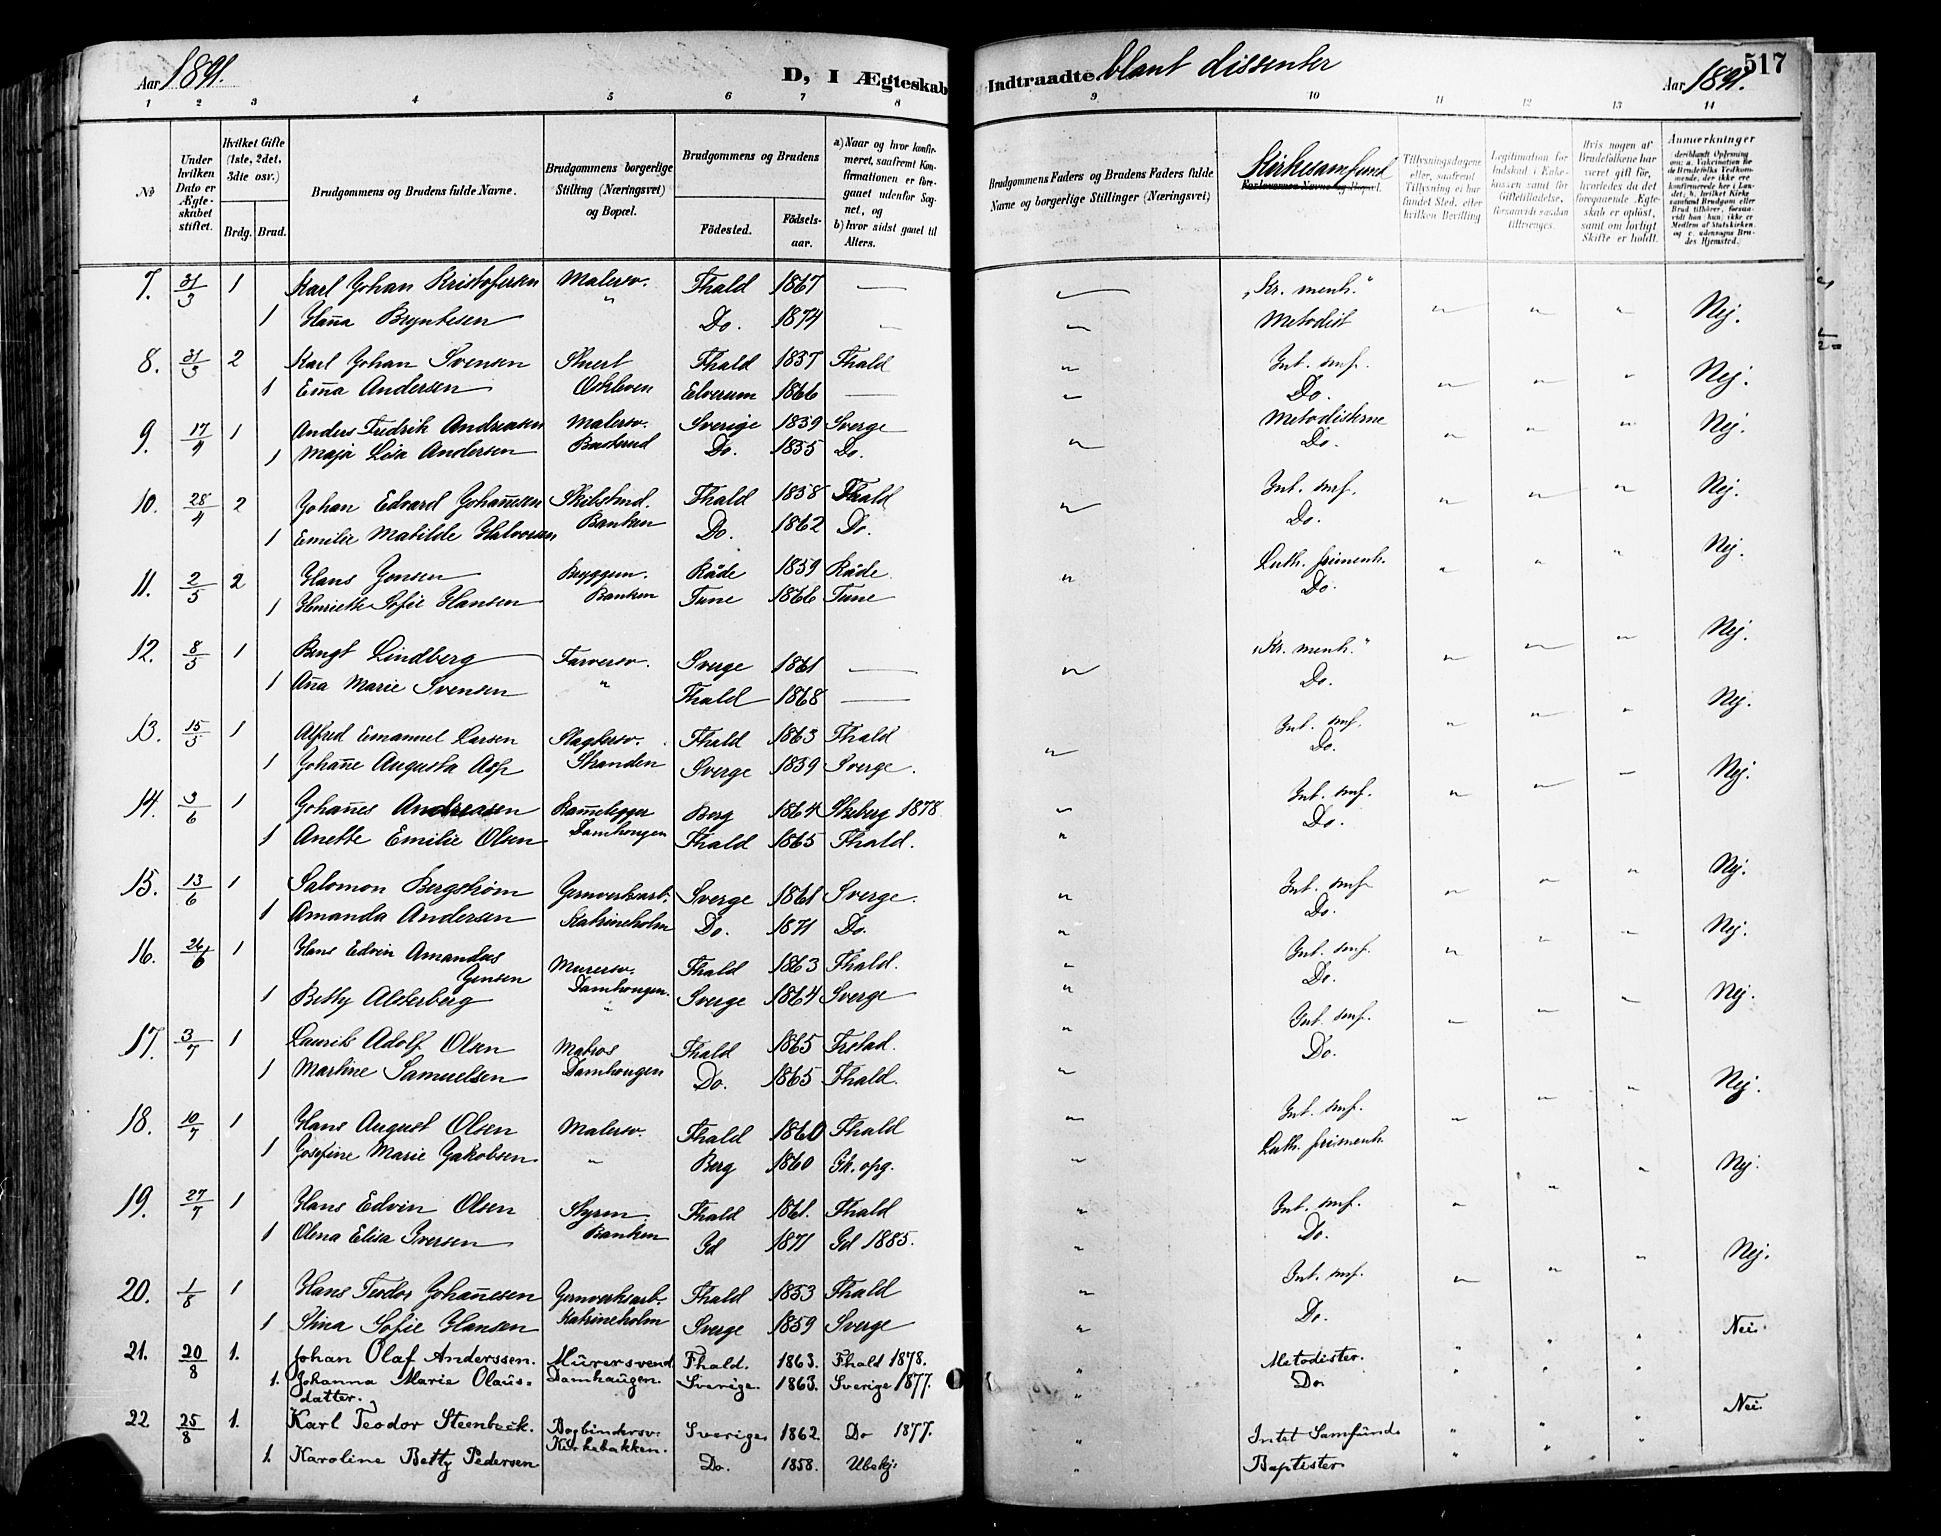 Aar 1891. D, I Ægteskab Indtraadte blant dissenter Aar 1891. 517
1 2 3 4 5 6 7 8 9 10 11 12 13 14
No
Under hvilken Dato er Ægteskabet stiftet.
Hvilket Gifte (1ste, 2det, 3die osv.)
Brdg. Brud.
Brudgommens og Brudens fulde Navne.
Brudgommens borgerlige Stilling (Næringsvei) og Bopæl.
Brudgommens og Brudens
Födested. Födselsaar.
a) Naar og hvor konfirmeret, saafremt Konfirmationen er foregaaet udenfor Sognet, og b) hvor sidst gaaet til Alters.
Brudgommens Faders og Brudens Faders fulde Navne og borgerlige Stillinger (Næringsvei)
Kirkesamfund
Forlovernes Navne og Bopæl.
Tillysningsdagene eller, saafremt Tillysning ei har fundet Sted, efter hvilken Bevilling
Legitimation for Indskud i Enkekassen samt for Giftetilladelse, forsaavidt saadan tiltrænges.
Hvis nogen af Brudefolkene har været gift før, hvorledes da det foregaaende Ægteskab er opløst, samt om lovligt Skifte er holdt.
Anmærkninger
7. 31/3 1 Karl Johan Kristofersen Malersv. Fhald 1867 — — „Kr. menh." " " " Nej.
1 Hanna Bryntesen " Do. 1874 " " Metodist
8. 31/3 2 Karl Johan Svensen Skuert Fhald 1837 Fhald " Int. smf. " " " Nej.
1 Emma Andersen Oskleven Elverum 1866 — " Do.
9. 17/4 1 Anders Fredrik Andreasen Malersv. Sverige 1839 Sverge " Metodisterne " " " Nej.
1 Maja Lisa Andersen Basterud Do. 1835 Do. Do.
10. 28/4 2 Johan Edvard Johannesen Skibstmd. Fhald 1838 Fhald " Int. smf. " " " Nej.
1 Emilie Matilde Halvorsen Banken Do. 1862 Do. Do.
11. 2/5 2 Hans Jensen Bryggem. Råde 1839 Råde " Luth. frimenh. " " " Nej.
1 Henriette Sofie Hansen Banken Tune 1866 Tune Do.
12. 8/5 1 Bengt Lindberg Farversv. Sverge 1861 — " „Kr. menh." " " " Nej.
1 Anna Marie Svensen " Fhald 1868 — Do.
13. 15/5 1 Alfred Emanuel Larsen Slagtersv. Fhald 1863 Fhald " Int. smf. " " " Nej.
1 Johanne Augusta Asp Stranden Sverge 1839 Sverge. Do.
14. 3/6 1 Johannes Andreasen Rammelegger Berg 1864 Skeberg 1878 " Int. smf. " " " Nej.
1 Anette Emilie Olsen Damhougen Fhald 1865 Fhald. " Do.
15. 13/6 1 Salomon Bergstrøm Jernverksarb. Sverge 1861 Sverge. " Int. smf " " " Nej.
1 Amanda Andersen Katrineholm Do. 1871 Do. " Do.
16. 26/6 1 Hans Edvin Amandus Jensen Murersv. Fhald 1863 Fhald. " Int. smf. " " " Nej.
1 Betty Alsterberg Damhougen. " Sverge 1864 Sverge " Do.
17. 3/7 1 Laurits Adolf Olsen Matros Fhald 1865 Frstad. " Int. smf. " " " Nej.
1 Martine Samuelsen Damhougen Do. 1865 Fhald. " Do.
18. 10/7 1 Hans August Olsen Malersv. Fhald 1860 Fhald " Int. smf. " " " Nej.
1 Josefine Marie Jakobsen " Berg 1860 Ik. opg. " Luth. frimenh.
19. 27/7 1 Hans Edvin Olsen Styrm. Fhald 1861. Fhald " Int. smf. " " " Nej.
1 Olena Elisa Iversen Banken Id 1871 Id 1885. " Do.
20. 1/8 1 Hans Teodor Johannesen Jernverksarb. Fhald 1853 Fhald " Int. smf. " " " Nej.
1 Stina Sofie Hansen Katrineholm Sverge 1859 Sverge " Do.
21. 20/8 1. Johan Olaf Anderssen. Mürersvend Fhald. 1863. Fhald 1878. " Metodister. " " " Nei.
1. Johanna Marie Olausdatter. Damhaugen. Sverige. 1863. Sverige 1877. " Do. " " "
22 25/8 1. Karl Teodor Steenbeck. Bogbindersv. Sverige. 1862. Do 1877. " Intet Samfünd. " " " Nei.
1. Karoline Betty Pedersen Kirkebakken. Do. 1858. Ubekj. " Baptister " " "